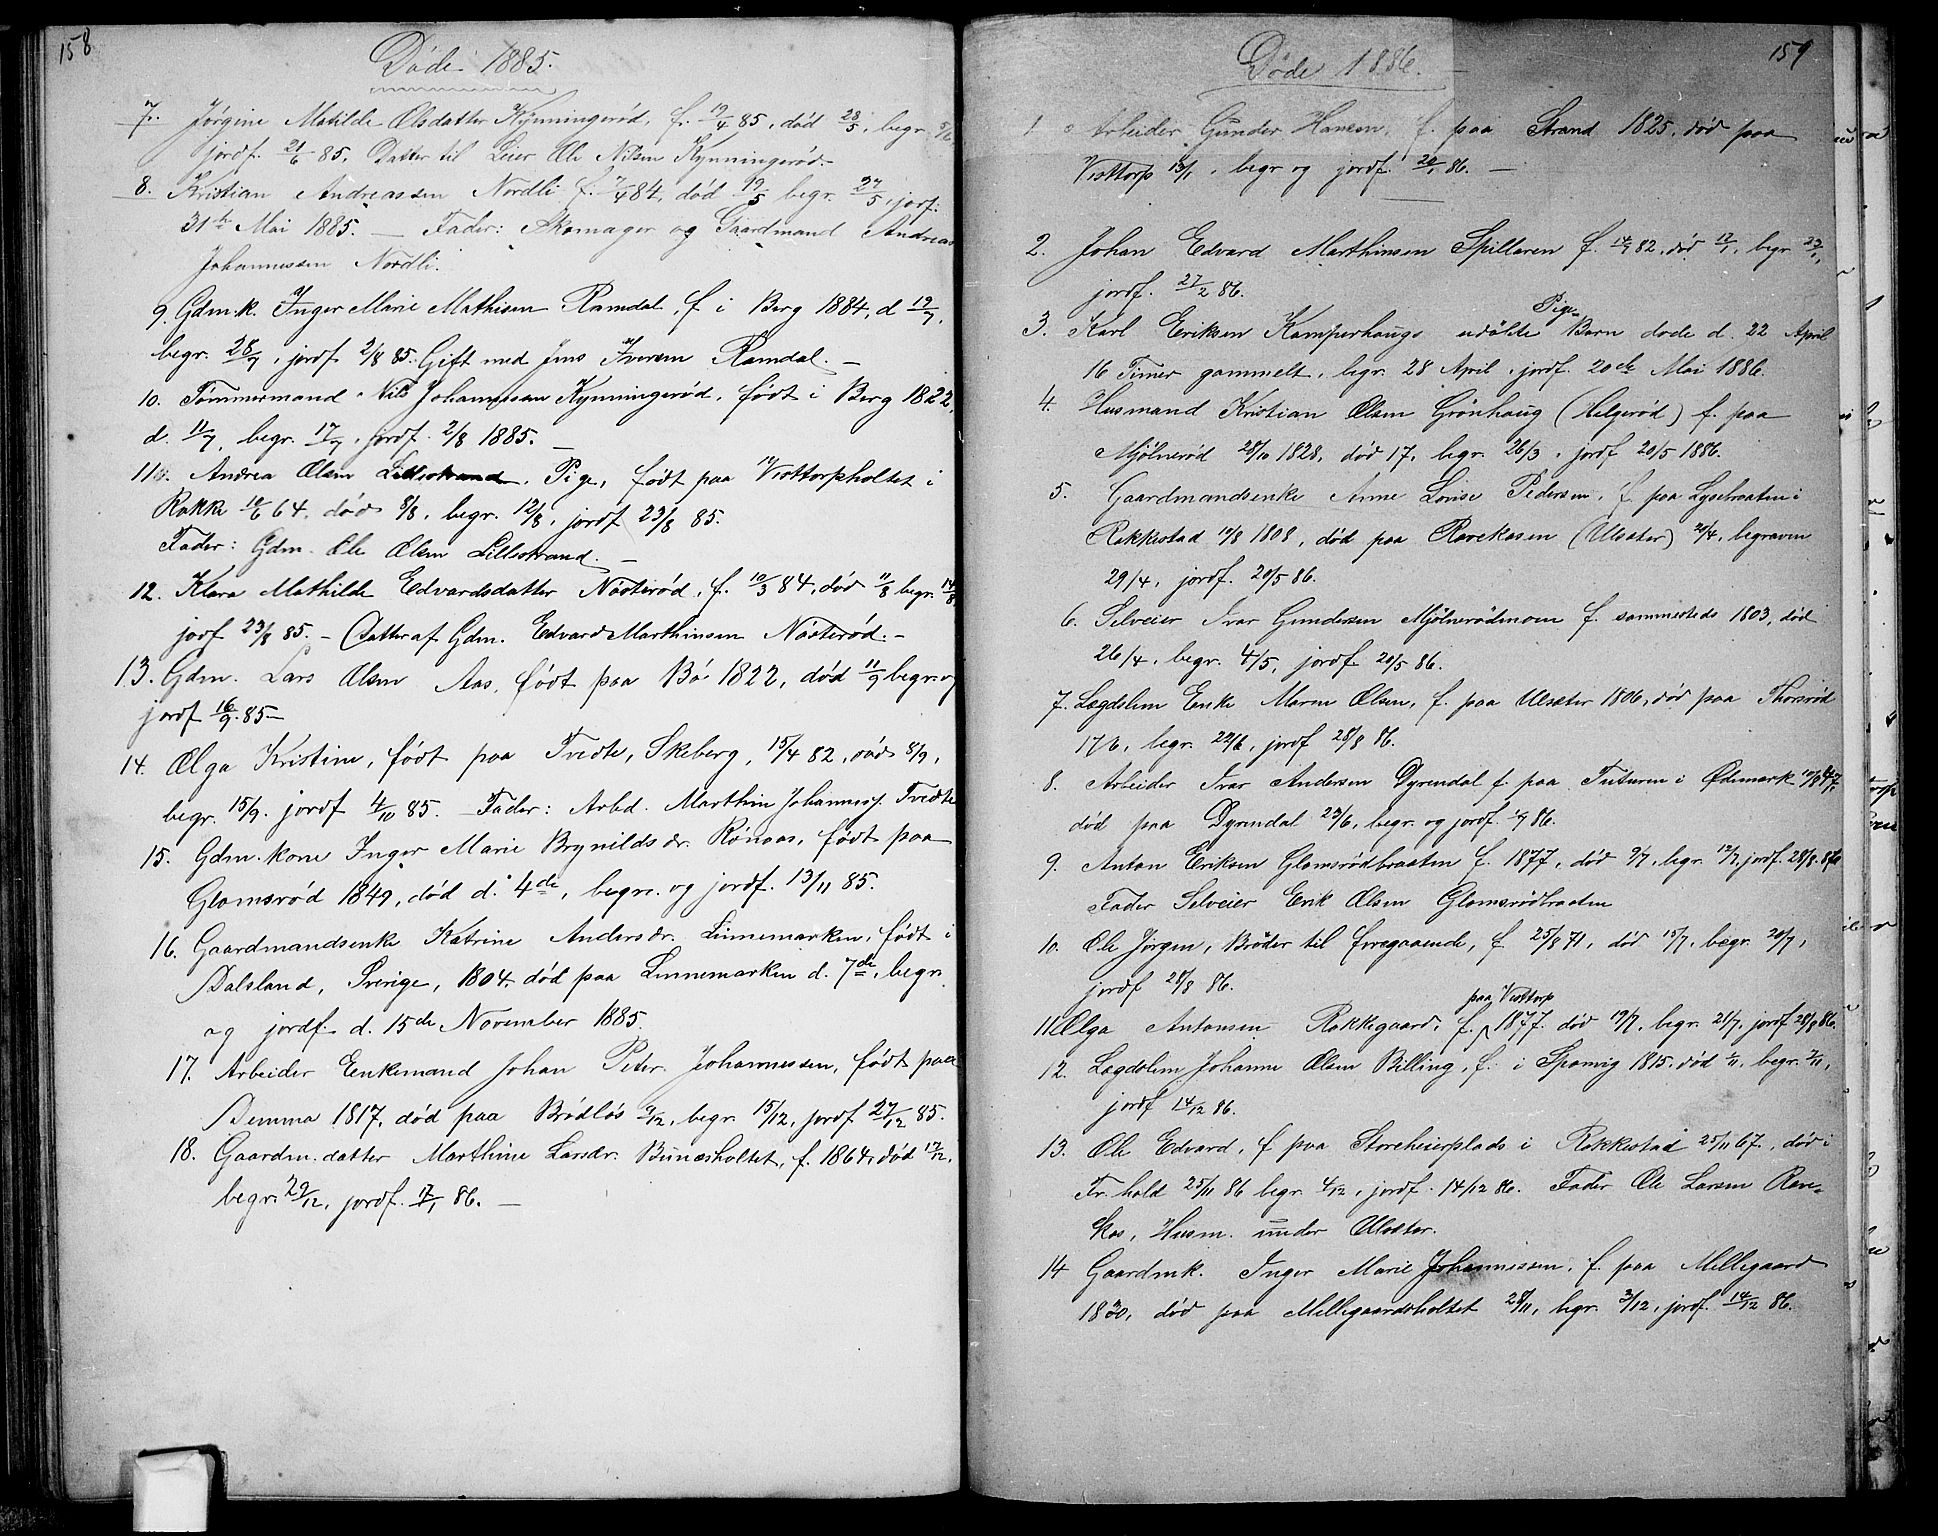 158
Döde 1885.
7. Jørgine Matilde Olsdatter Kynningerød, f. 19/4 85, død 28/5, begr. 5/6
jordf. 21/6 85. Datter til Leier Ole Nilsen Kynningerød.
8. Kristian Andreassen Nordli f. 7/4 84, død 19/5 begr. 27/5, jorf:
31te Mai 1885. — Fader: Skomager og Gaardmand Andreas
Johannessen Nordli.
9. Gdm.k. Inger Marie Mathisen Ramdal, f i Berg 1884, d 19/7,
begr. 28/7, jordf 2/8 85. Gift med Jens Iversen Ramdal. —
10. Tømmermand Nils Johannessen Kynningerød, født i Berg 1822,
d. 11/7, begr. 17/7, jordf. 2/8 1885. —
11. Andrea Olsen Lillestrand, Pige, født paa Visttorpholtet i
Rakke 10/6 64, død 8/8, begr. 12/8, jordf 23/8 85.
Fader: Gdm. Ole Olsen Lillestrand. —
12. Klara Mathilde Edvardsdatter Nösterød, f. 10/3 84, død 11/8 begr. 14/8,
jorf 23/8 85. – Datter af Gdm. Edvard Marthinsen Nösterød. –
13. Gdm. Lars Olsen Aas, født paa Bö 1822, død 11/9 begr. og
jordf 16/9. 85 —
14. Olga Kristine, født paa Tvedte, Skeberg, 15/4 82, død 8/9,
begr. 15/9. jordf 4/10 85. — Fader: Arbd. Marthin Johannesf. Tvedte
15. Gdm.kone Inger Marie Brynildsdr. Rönaas, født paa
Glomsrød 1849, død d. 4de, begr. og jordf. 13/11 85.
16. Gaardmandsenke Katrine Andersdr. Linnemarken, født i
Dalsland, Sverige, 1804, død paa Linnemarken d. 7de, begr.
og jordf. d. 15de November 1885.
17. Arbeider Enkemand Johan Peter Johannessen, født paa
Demma 1817, død paa Brödlös 9/12, begr. 15/12, jordf 27/12 85.
18. Gaardm.datter Marthine Larsdr. Bunæsholtet, f. 1864, død 17/12,
begr. 29/12, jordf. 17/1 86. —
159
Døde 1886. —
1. Arbeider Gunder Hansen, f. paa Strand 1825, død paa
Visttorp 13/1, begr og jordf. 20/1 86. —
2. Johan Edvard Marthinsen Spillaren f. 14/7 82, död 17/1, begr 23/1,
jordf. 27/2 86.
3. Karl Eriksen Kamperhaugs udöbte Pige- Barn døde d. 22 April
16 Timer gammelt, begr. 28 April, jordf. 20de Mai 1886.
4. Husmand Kristian Olsen Grönhaug (Helgerød) f. paa
Mjölnerød 28/10 1828, død 17, begr. 26/3, jordf 20/5 1886.
5. Gaardmandsenke Anne Lovise Pedersen, f. paa Lysebraaten i
Rakkestad 10/8 1808, död paa Ravekasen (Ulsæter) 20/4, begraven
29/4, jordf. 20/5 86.
6. Selveier Ivar Gundersen Mjölnerødmoen f. sammesteds 1803, død
26/4, begr. 4/5, jordf 20/5 86.
7. Lægdslem Enke Maren Olsen, f. paa Ulsæter 1806, død paa Thorsrød
17/6, begr. 22/6, jordf 28/8 86.
8. Arbeider Ivar Andersen Dyrendal f. paa Tuturen i Ødemark
død paa Dyrendal 23/6, begr. og jordf. 1/7 86.
9. Anton Eriksen Glomsrødbraaten f. 1877, død 9/7, begr. 12/7, jordf. 28/8. 86
Fader Selveier Erik Olsen Glomsrødbraaten
10. Ole Jørgen, Bröder til foregaaende, f 25/8 71, død 15/7, begr. 20/7,
jordf 28/8 86.
11. Olga Antonsen Rakkegaard, f. paa Visttorp 1877. död 19/7, begr. 21/7, jordf 28/8 86.
12. Lægdslem Johanne Olsen Billing, f. i Sponvig 1815, død 1/11, begr. 7/11,
jordf 14/12 86.
13. Ole Edvard, f paa Storeheierplads i Rakkestad 25/11 67, död i
Fr.hald 25/11 86 begr. 4/12, jordf. 14/12 86. Fader Ole Larsen Rave-
kas, Husm. under Ulsæter.
14 Gaardmk. Inger Marie Johannessen, f. paa Mellegaard
1830, død paa Mellegaardsholtet 28/11, begr. 3/12, jordf. 14/12 86.